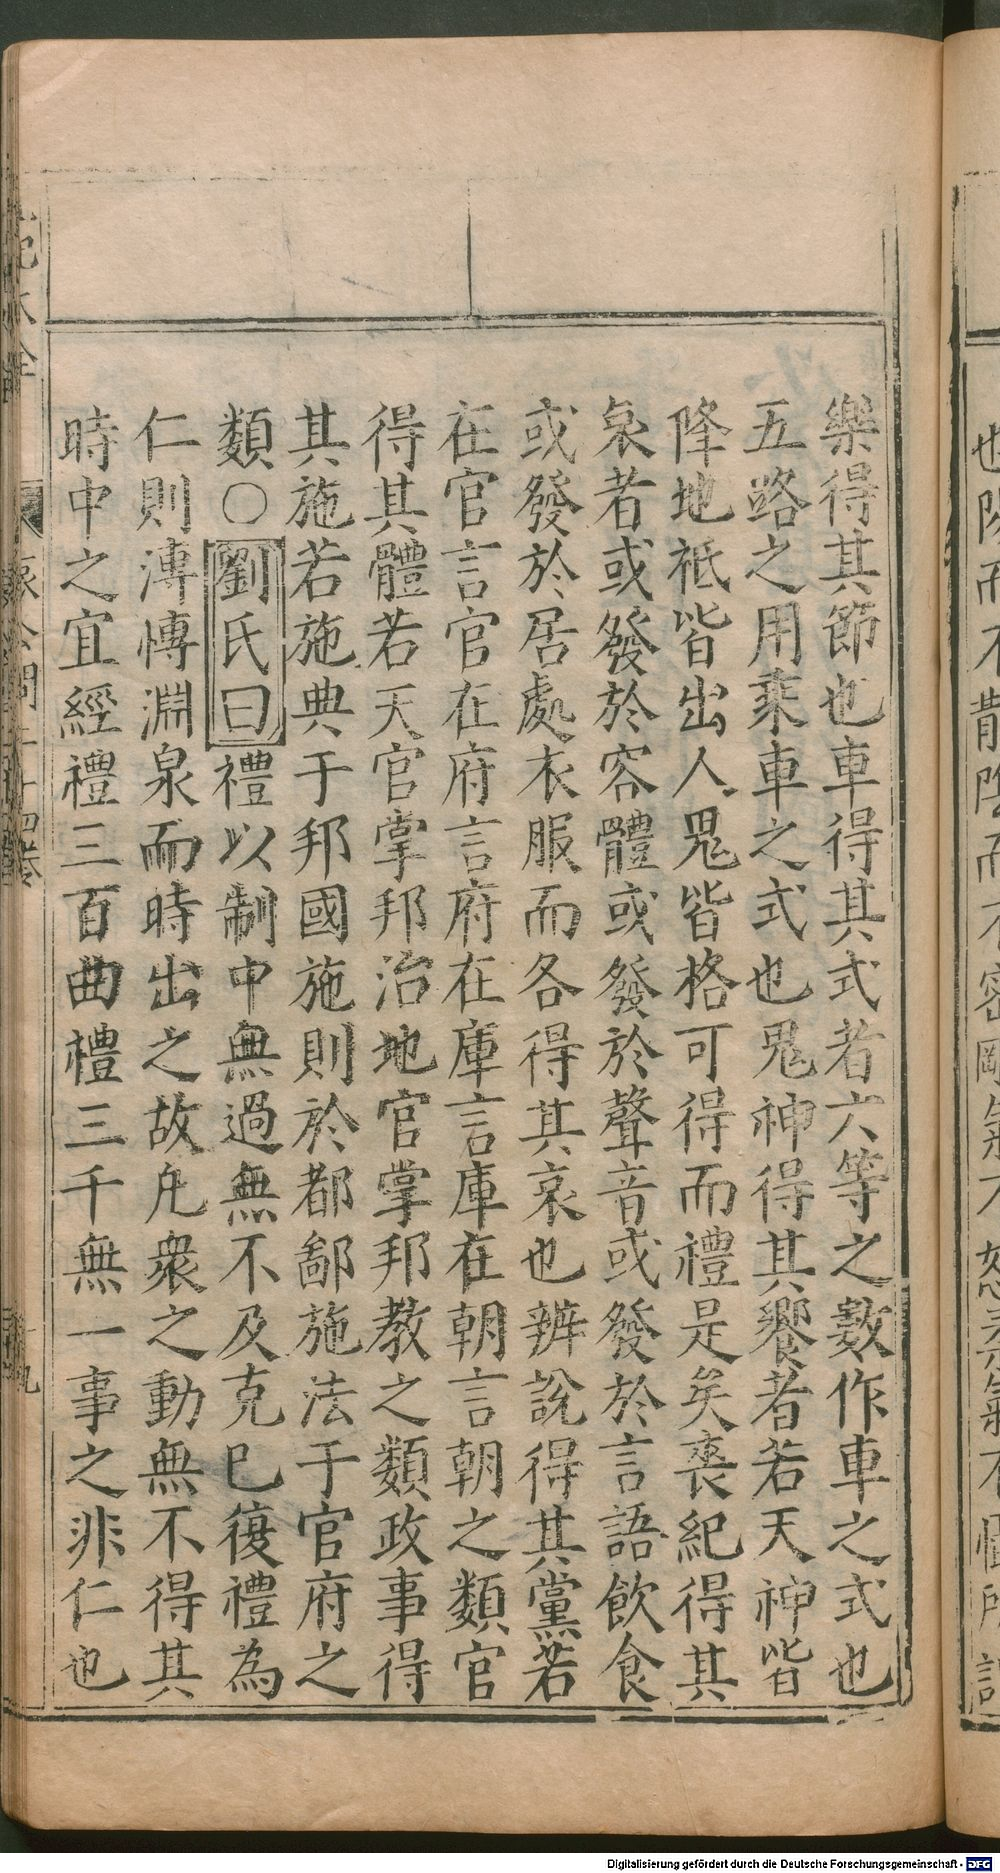 樂得其節也車得其式者六等之數作車之式也
五路之用乘車之式也鬼神得其饗者若天神皆
降地祗皆出人鬼皆格可得而禮是矣喪紀得其
哀者或發於容體或發於聲音或發於言語飲食
或發於居處衣服而各得其哀也辨說得其黨若
在官言官在府言府在庫言庫在朝言朝之類官
得其體若天官掌邦治地官掌邦教之類政事得
其施若施典于邦國施則於都鄙施法于官府之
類○劉氏曰禮以制中無過無不及克己復禮為
仁則溥慱淵泉而時出之故凡衆之動無不得其
時中之宜經禮三百曲禮三千無一事之非仁也
Digitalisierung gefördert durch die Deutsche Forschungsgemeinschaft - DFG